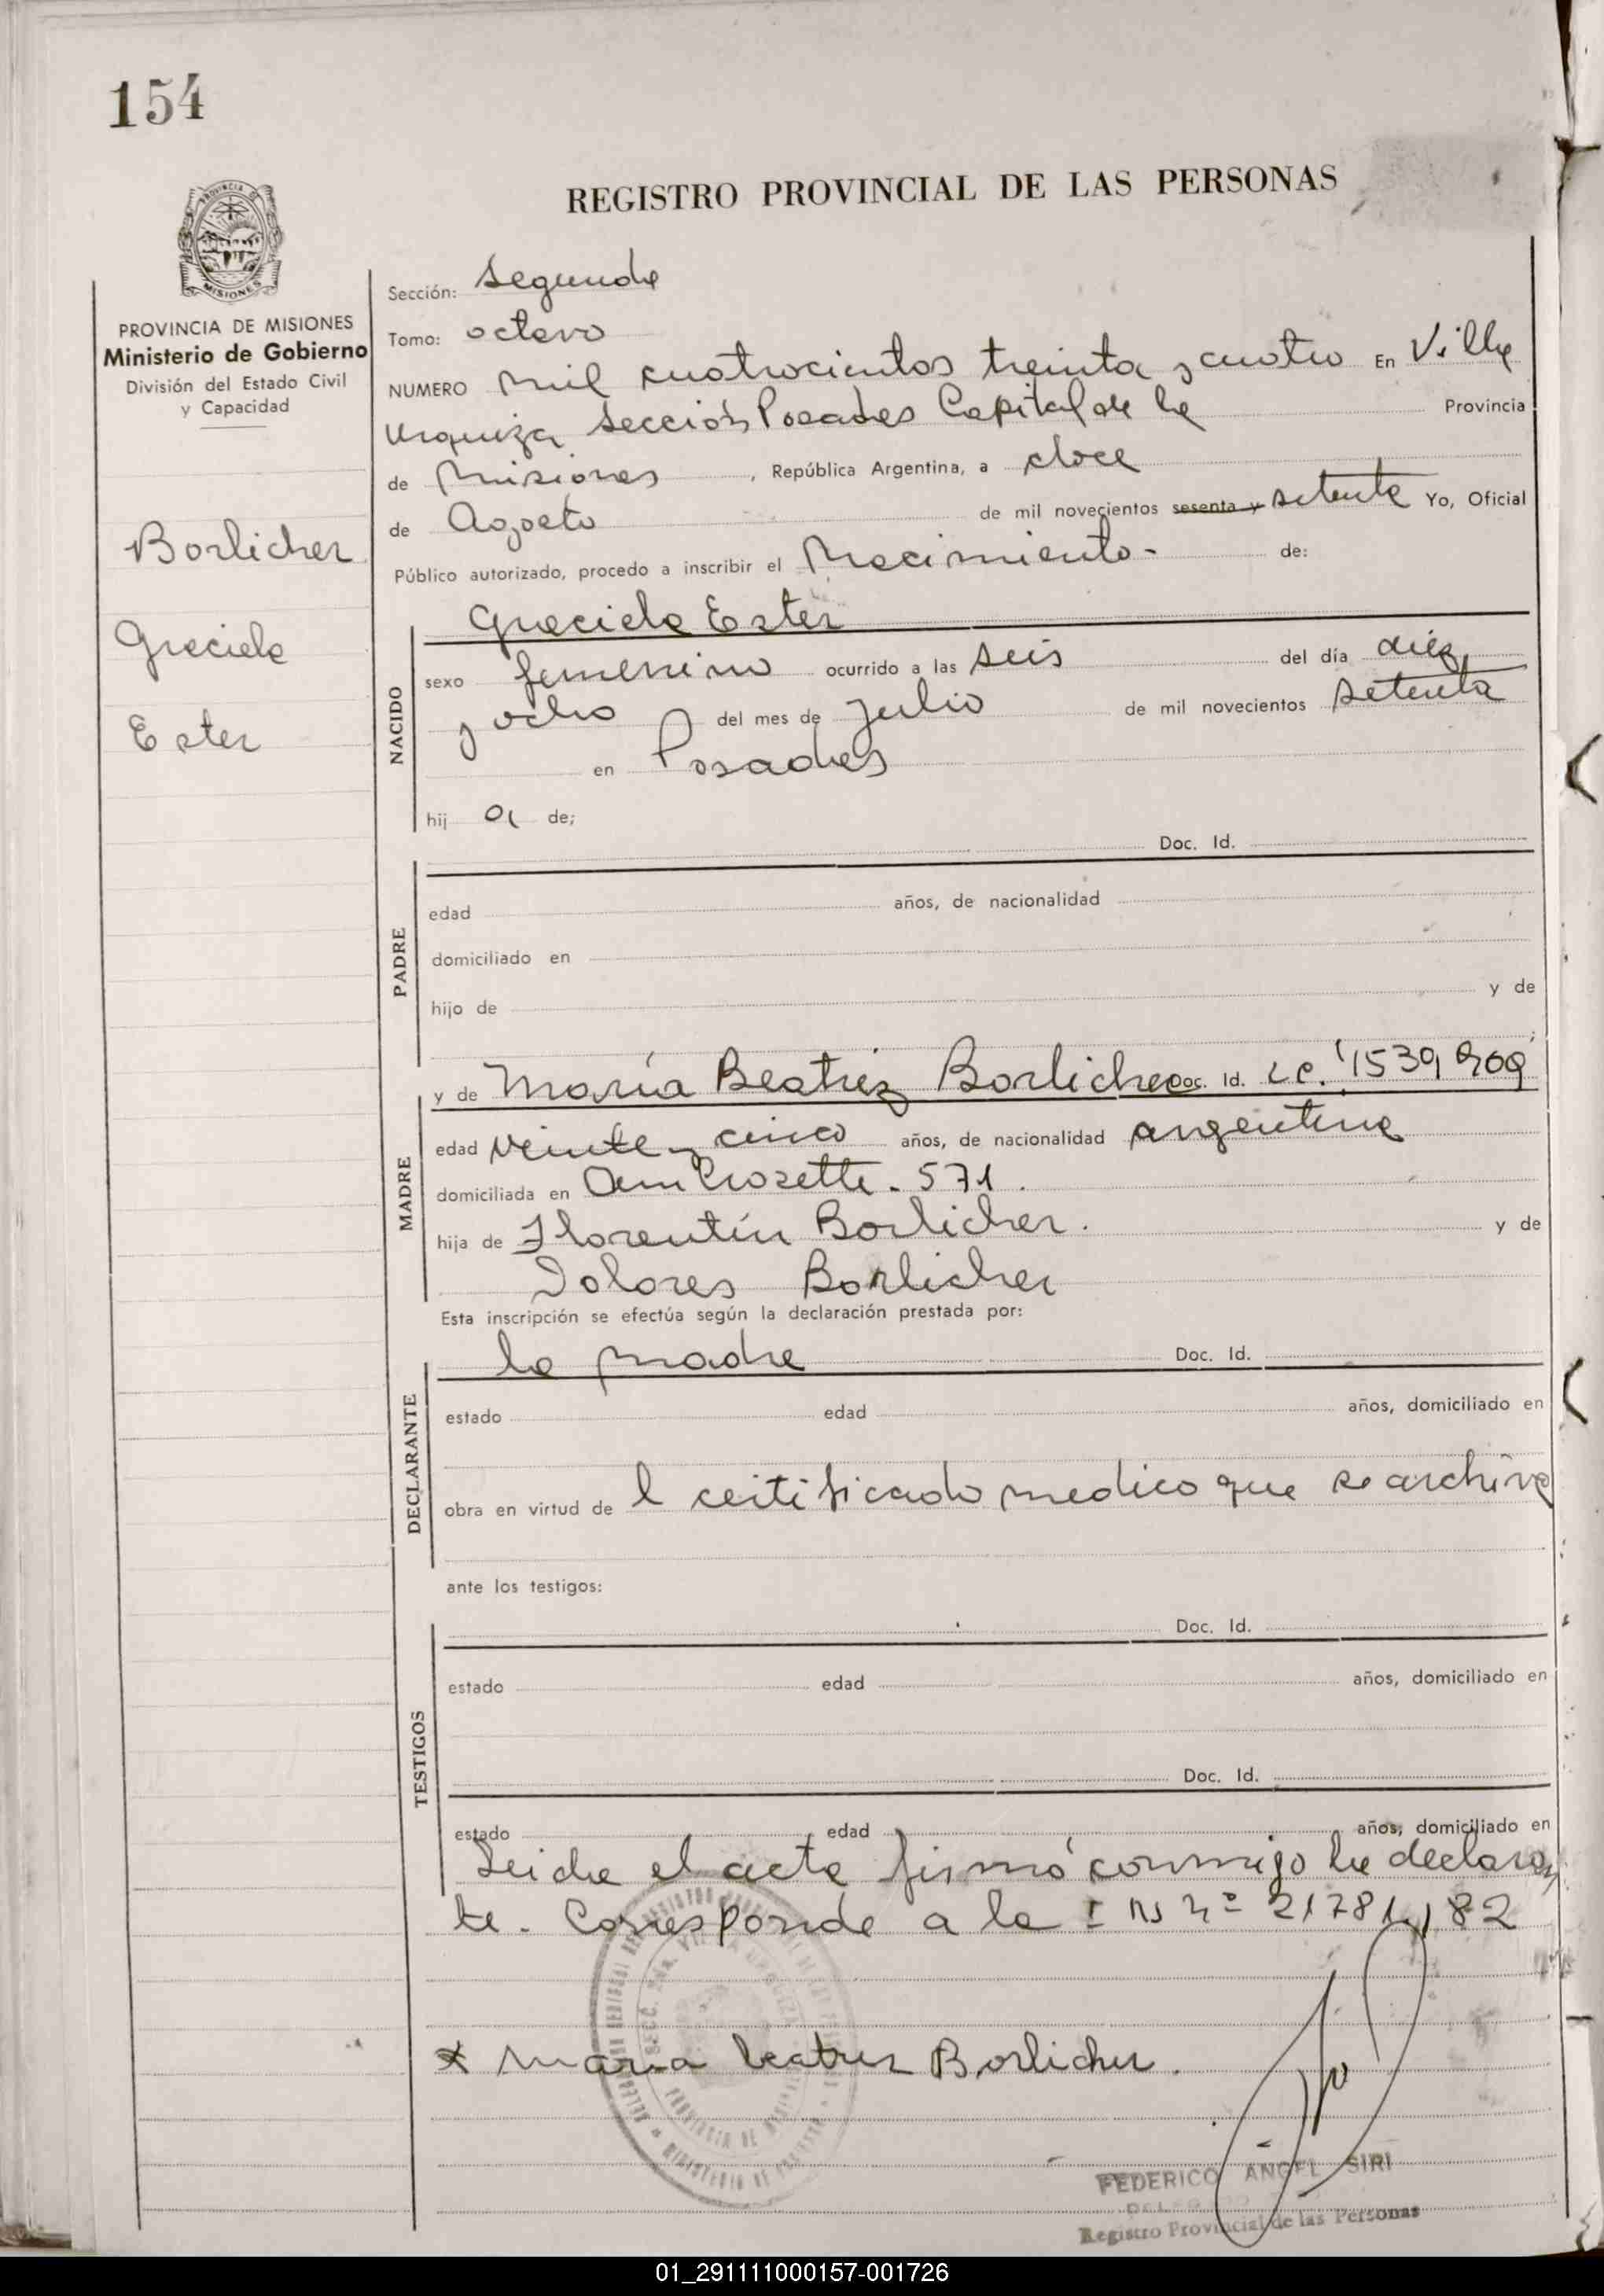 154
REGISTRO PROVINCIAL DE LAS PERSONAS
PROVINCIA DE MISIONES
MISIONES
PROVINCIA DE MISIONES
Ministerio de Gobierno
División del Estado Civil
y Capacidad
Borlicher
Graciela
Ester
Sección: Segunda
Tomo: octavo
NUMERO Mil cuatrocientos treinta y cuatro En Villa
Urquiza Sección Posadas Capital de la Provincia
de Misiones, República Argentina, a doce
de Agosto de mil novecientos sesenta y setenta Yo, Oficial
Público autorizado, procedo a inscribir el Nacimiento - de:
NACIDO
Graciela Ester
sexo femenino ocurrido a las seis del día diez
y ocho del mes de Julio de mil novecientos setenta
en Posadas
hij a de;
PADRE
Doc. Id.
edad años, de nacionalidad
domiciliado en
hijo de y de
MADRE
y de María Beatriz Borlicher Doc. Id. L.C. 1539 909
edad veinte y cinco años, de nacionalidad argentina
domiciliada en Ambrosetti - 571.
hija de Florentín Borlicher. y de
Dolores Borlicher
Esta inscripción se efectúa según la declaración prestada por:
DECLARANTE
la madre Doc. Id.
estado edad años, domiciliado en
obra en virtud de l certificado medico que se archiva
ante los testigos:
TESTIGOS
Doc. Id.
estado edad años, domiciliado en
Doc. Id.
estado edad años, domiciliado en
Leida el acta firmó conmigo la declaran
te - Corresponde a la I N nº 21781,182
x Maria beatriz Borlicher.
FEDERICO ANGEL SIRI
Registro Provincial de las Personas
01_291111000157-001726